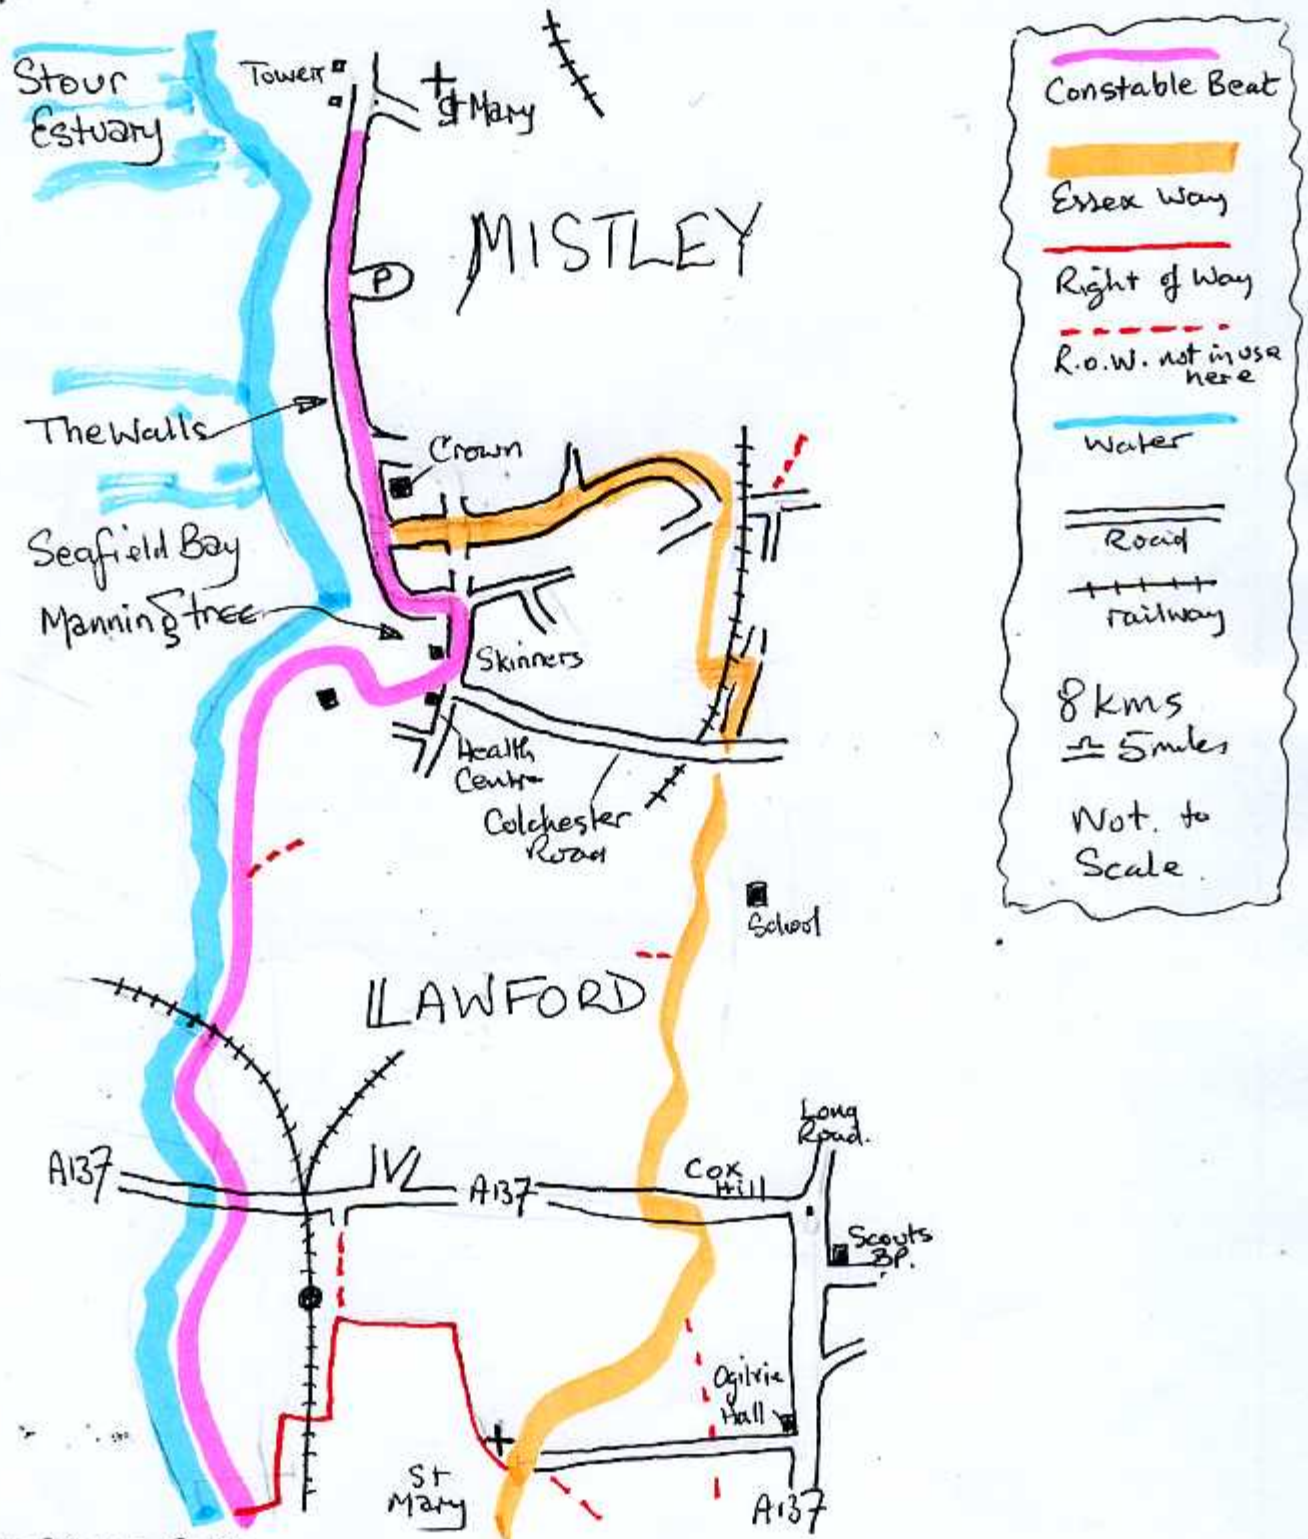 Stour
Estuary
Tower
St Mary
MISTLEY
P
The Walls
Crown
Seafield Bay
Manningtree
Skinners
Health
Centre
Colchester
Road
School
LAWFORD
Long
Road.
A137
A137
Cox
Hill
Scouts
BP.
Ogilvie
Hall
St
Mary
A137
Constable Beat
Essex Way
Right of Way
R.o.W. not in use
here
Water
Road
railway
8 kms
≏ 5 miles
Not. to
Scale.